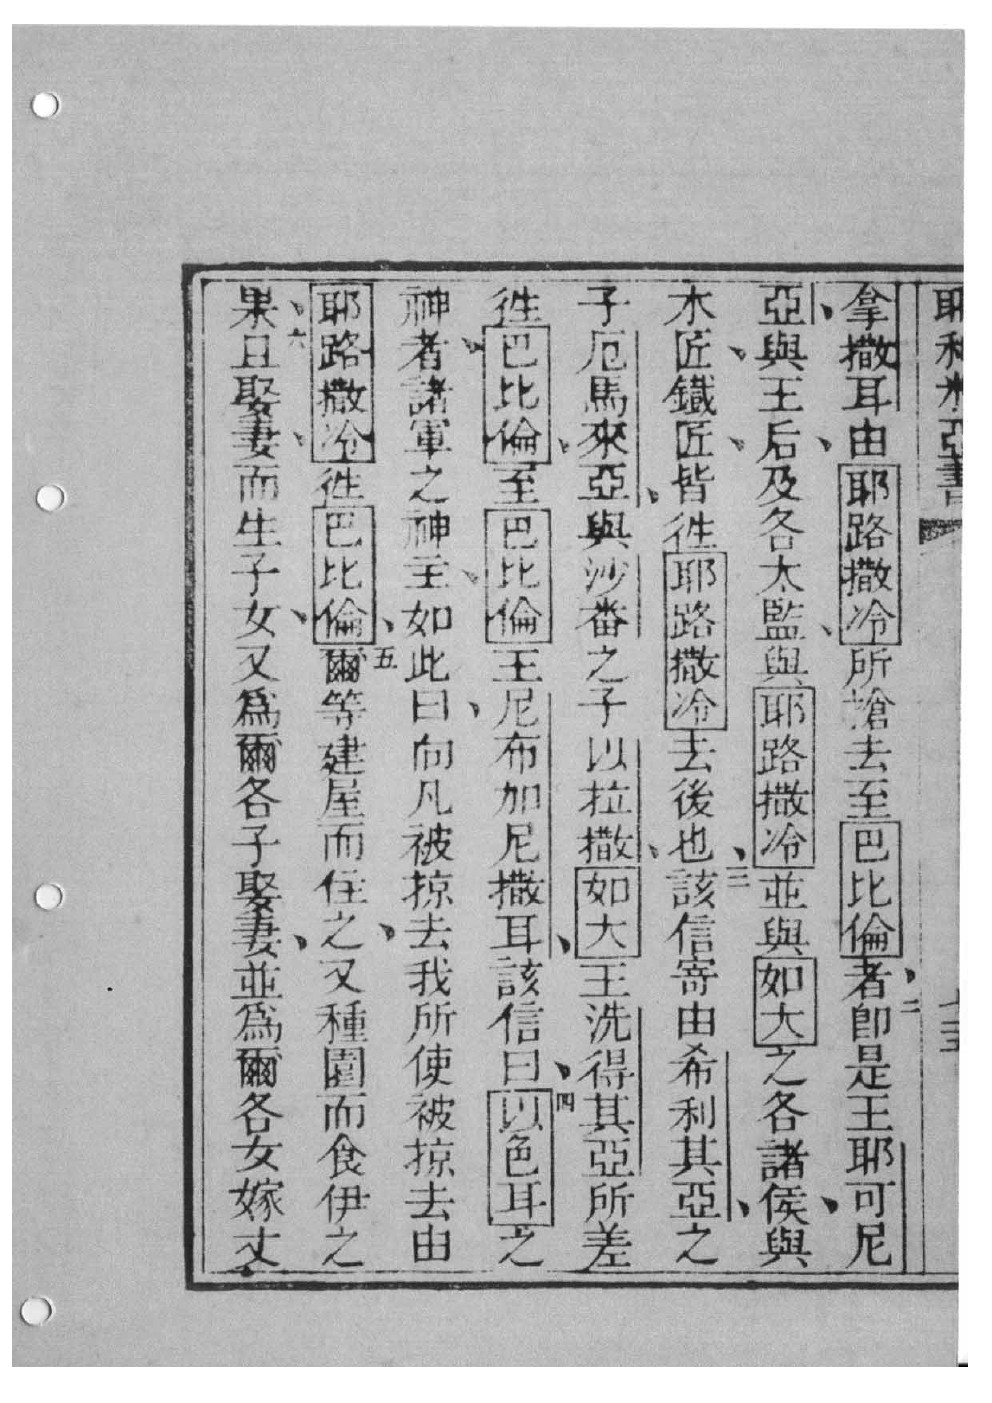 耶利米亞書
拿撒耳由耶路撒冷所搶去至巴比倫者、二即是王耶可尼
亞、與王后、及各太監、與耶路撒冷並與如大之各諸侯、與
木匠、鐵匠、皆徃耶路撒冷去後也、三該信寄由希利其亞、之
子厄馬來亞、與沙番之子以拉撒、如大王洗得其亞所差
徃巴比倫、至巴比倫王尼布加尼撒耳、該信曰、四以色耳之
神者、諸軍之神主、如此曰、向凡被掠去我所使被掠去由
耶路撒冷徃巴比倫、五爾等建屋而住之、又種園而食伊之
果、六且娶妻、而生子女、又爲爾各子娶妻、並爲爾各女嫁丈